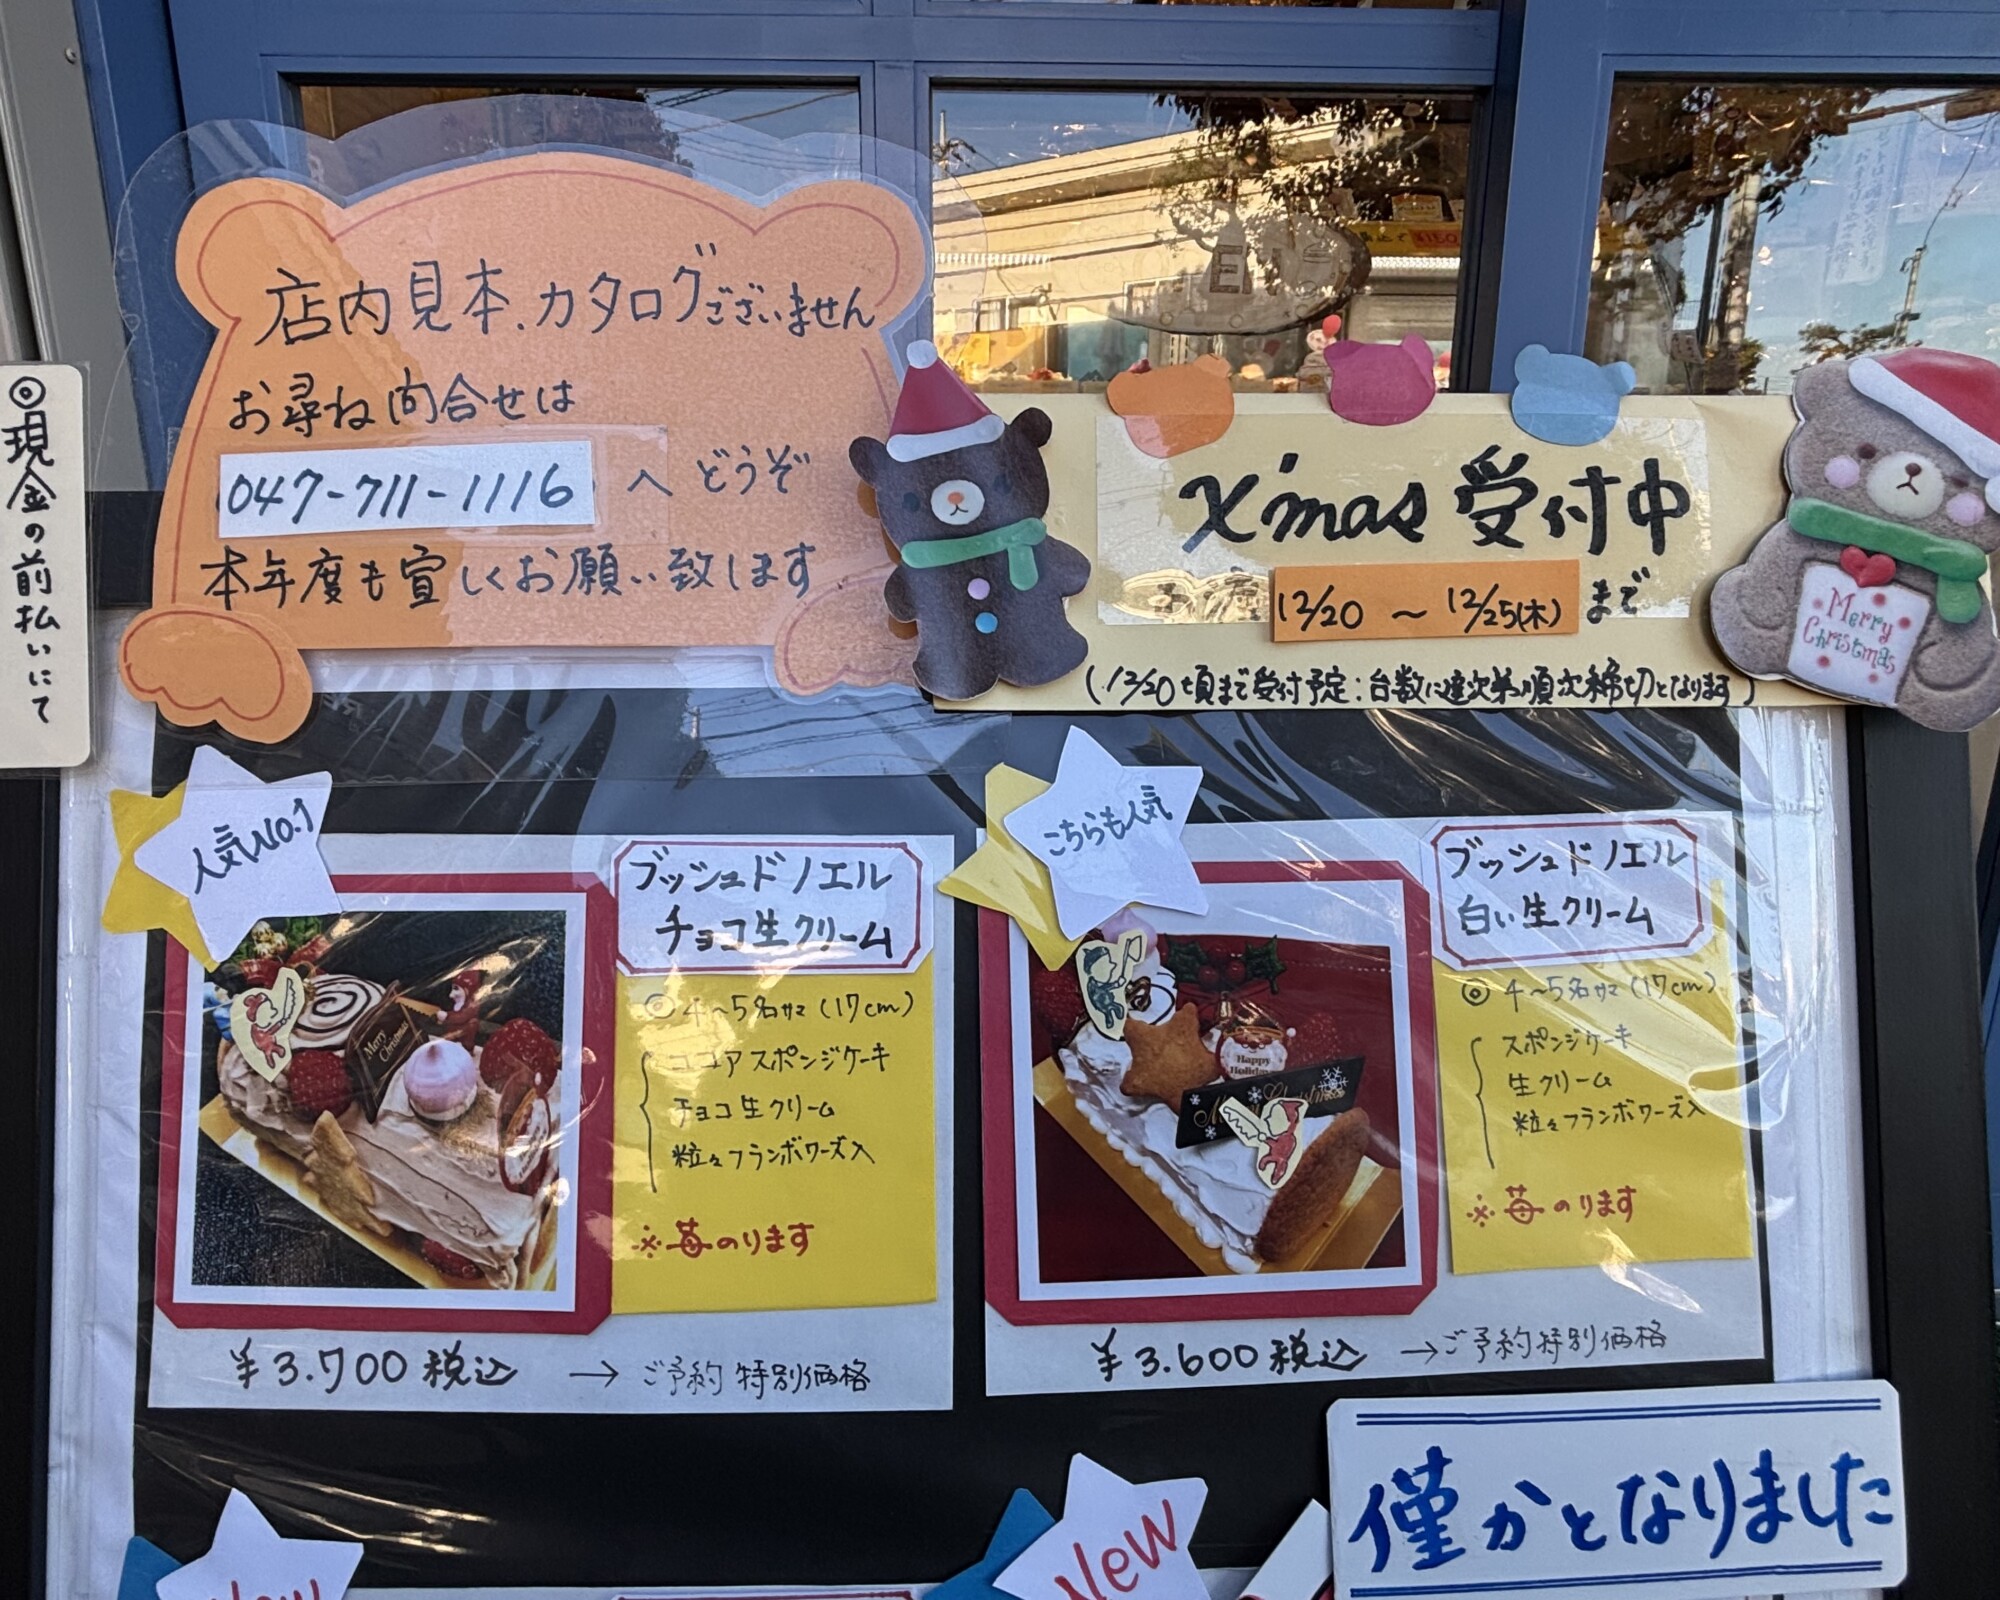 店内見本、カタログございません
お尋ね問合せは
047-711-1116 へどうぞ
本年度も宜しくお願い致します
◎現金の前払いにて
X'mas 受付中
12/20 ～ 12/25(木) まで
(12/20頃まで受付予定:台数に達次第順次締切となります)
Merry
Christmas
人気No.1
ブッシュドノエル
チョコ生クリーム
◎ 4～5名サマ (17cm)
ココアスポンジケーキ
チョコ生クリーム
粒々フランボワーズ入
※苺のります
Merry
Christmas
¥3.700 税込 → ご予約特別価格
こちらも人気
ブッシュドノエル
白い生クリーム
◎ 4～5名サマ (17cm)
スポンジケーキ
生クリーム
粒々フランボワーズ入
※苺のります
Happy
Holidays
¥3.600 税込 → ご予約特別価格
僅かとなりました
New
New